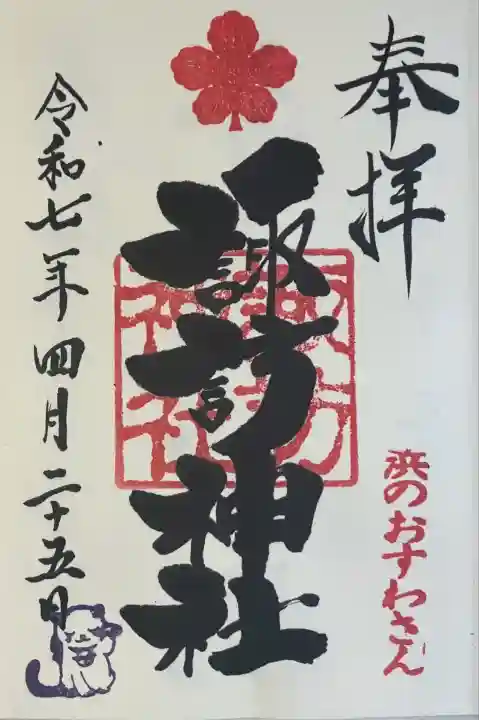 奉拝
浜のおすわさん
諏訪神社
諏方
神社
令和七年四月二十五日